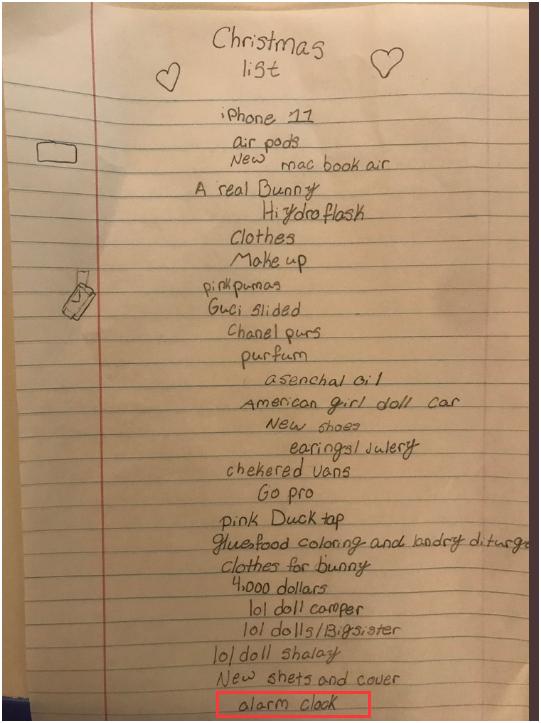 Christmas
list
iPhone 11
air pods
New mac book air
A real Bunny
Hydroflask
Clothes
Make up
pink pumas
Guci slided
Chanel purs
purfum
asenchal oil
American girl doll car
New shoes
earings/Julery
chekered vans
Go pro
pink Duck tap
gluesfood coloring and landry diturge
Clothes for bunny
4,000 dollars
lol doll camper
lol dolls/Bigsister
lol doll shalay
New shets and cover
alarm clock